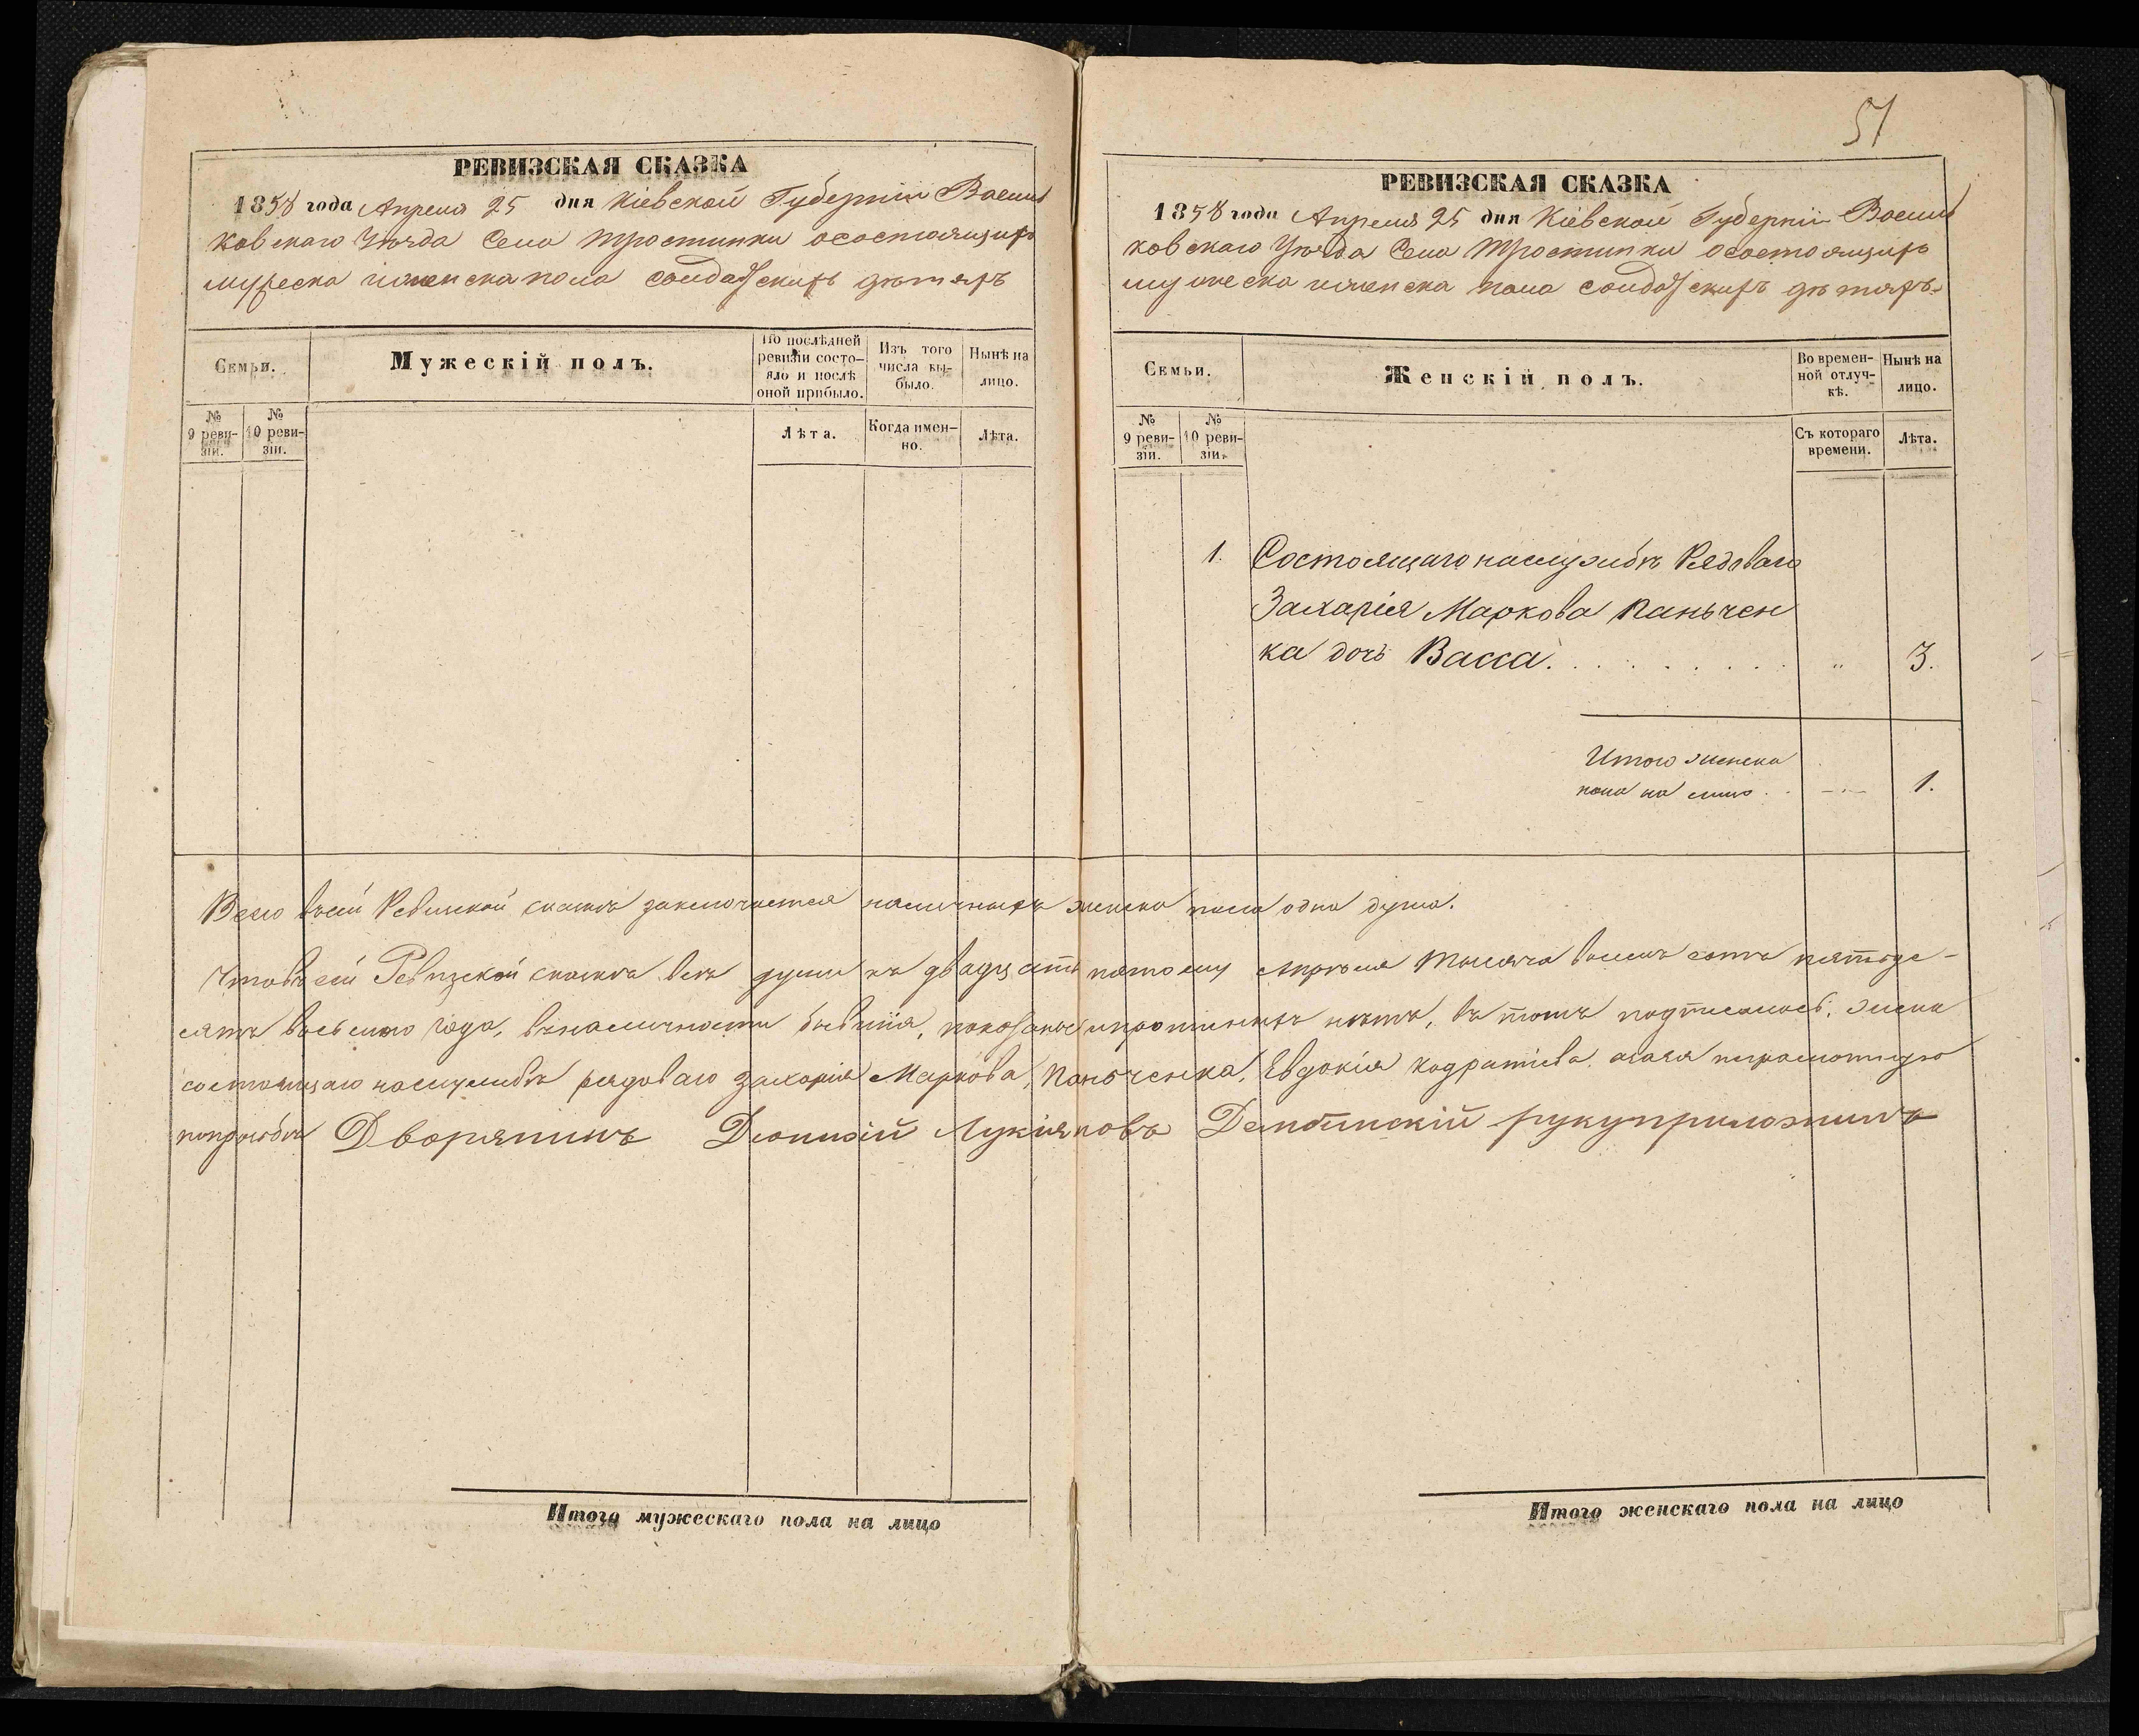 51
РЕВИЗСКАЯ СКАЗКА
1858 года Апреля 25 дня Кіевской Губерніи Василь
ковскаго Уѣзда Села Тростинки осостоящихъ
мужеска иженска пола солдатскихъ дѣтяхъ
Семьи.
Мужескій полъ.
По послѣдней ревизіи состояло и послѣ оной прибыло.
Изъ того числа выбыло.
Нынѣ на лицо.
№ 9 ревизіи.
№ 10 ревизіи.
Лѣта.
Когда именно.
Лѣта.
РЕВИЗСКАЯ СКАЗКА
1858 года Апреля 25 дня Кіевской Губерніи Василь
ковскаго Уѣзда Села Тростинки осостоящихъ
мужеска иженска пола солдатскихъ дѣтяхъ
Семьи.
Женскій полъ.
Во временной отлучкѣ.
Нынѣ на лицо.
№ 9 ревизіи.
№ 10 ревизіи.
Съ котораго времени.
Лѣта.
1. Состоящаго наслужбѣ Рядоваго
Захарія Маркова Паньчен
ка дочь Васса. 3.
Итого женска
пола на лицо 1.
Всего всей Ревизкой сказкѣ заключается наличныхъ женска пола одна душа.
Чтовсей Ревизской сказкѣ всѣ души къ двадцать пятому Апрѣля тысяча восемь сотъ пятьде-
сятъ восьмого года, вналичности бывшія, показаны ипрописныхъ нѣтъ, въ томъ подписалась: жена
состоящаго наслужбѣ рядоваго Захарія Маркова, Паньченка, Евдокія Кодратіева, азанея
попрозьбѣ Дворянинъ Діонизій Лукіяновъ рукуприложилъ
Итого мужескаго пола на лицо
Итого женскаго пола на лицо